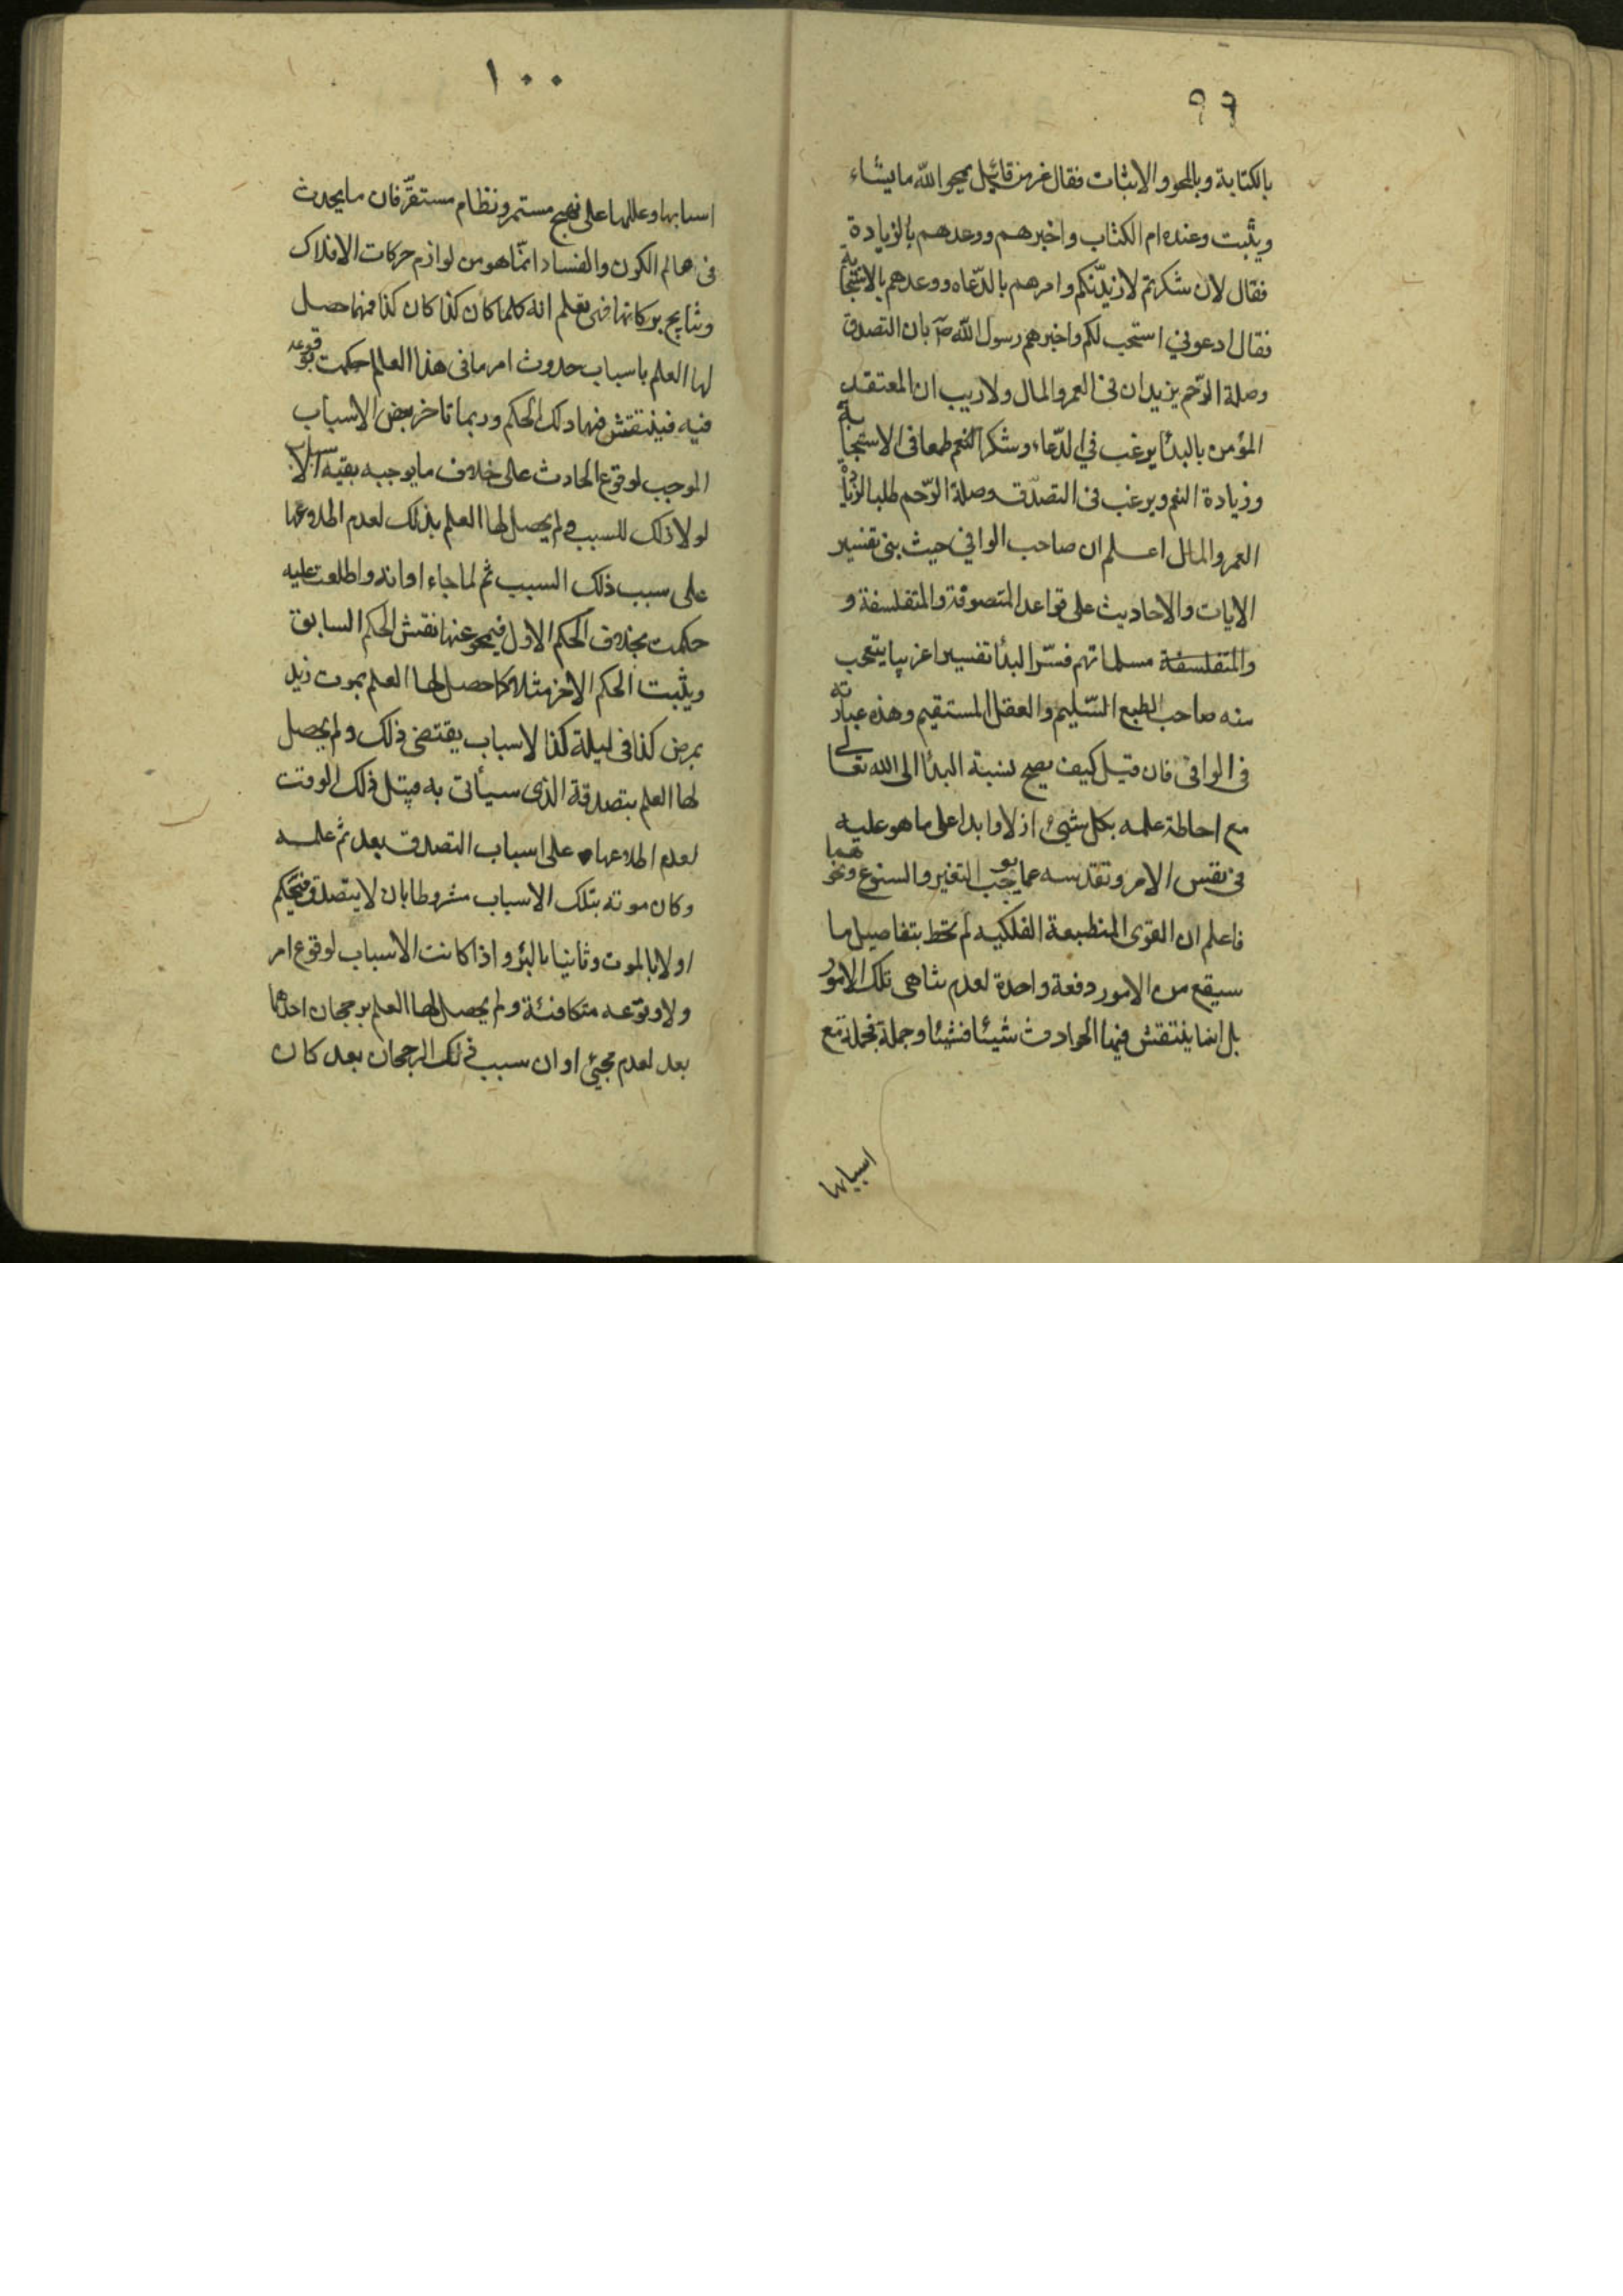 ٩٩
بالكتابة وبالمحو والاثبات فقال عز من قائل يمحو الله ما يشاء
ويثبت وعنده ام الكتاب واخبرهم ووعدهم بالزيادة
فقال لان شكرتم لازيدنّكم وامرهم بالدّعاء ووعدهم بالاستجابة
فقال ادعوني استجب لكم واخبرهم رسول اللّه ص بان التصدق
وصلة الرّحم يزيدان في العمر والمال ولا ريب ان المعتقد
المؤمن بالبدأ يرغب في الدّعاء وشكر النعم طمعا في الاستجابة
وزيادة النعم ويرغب في التصدّق وصلة الرّحم طلبا لزيادة
العمر والمال اعلم ان صاحب الوافي حيث بنى تفسير
الايات والاحاديث على قواعد المتصوفة والمتفلسفة و
والمتفلسفة مسلماتهم فسّر البدأ تفسيرا غريبا يتعجب
منه صاحب الطبع السّليم والعقل المستقيم وهذه عبارته
في الوافي فان قيل كيف يصح نسبة البدأ الى الله تعالى
مع احاطة علمه بكل شيئ ازلا وابدا على ما هو عليه
في نفس الامر وتقدسه عما يوجب التغير والسنوع ونحوهما
فاعلم ان القوى المنطبعة الفلكيه لم تحط بتفاصيل ما
سيقع من الامور دفعة واحدة لعدم تناهى تلك الامور
بل انما ينتقش فيها الحوادث شيئا فشيئا وجملة فجملة مع
اسبابها
١٠٠
اسبابها وعللها على نهج مستمر ونظام مستقرّ فان ما يحدث
في عالم الكون والفساد انّما هو من لوازم حركات الافلاك
ونتايج بركاتها فهى تعلم انه كلما كان كذا كان كذا فمهما حصل
لها العلم باسباب حدوث امر ما في هذا العالم حكمت بوقوعه
فيه فينتقش فيها ذلك الحكم وربما تاخر بعض الاسباب
الموجب لوقوع الحادث على خلاف ما يوجبه بقيه الاسباب
لولا ذلك السبب ولم يحصل لها العلم بذلك لعدم اطلاعها
على سبب ذلك السبب ثم لما جاء اوانه واطلعت عليه
حكمت بخلاف الحكم الاول فيمحو عنها نقش الحكم السابق
ويثبت الحكم الاخر مثلا كما حصل لها العلم بموت زيد
بمرض كذا في ليلة كذا لاسباب يقتضى ذلك ولم يحصل
لها العلم بتصدقة الذى سيأتى به قبل ذلك الوقت
لعدم اطلاعها على اسباب التصدق بعد ثم علمه
وكان موته بتلك الاسباب مشروطا بان لا يتصدق فتحكم
اولا بالموت وثانيا بالبرء واذا كانت الاسباب لوقوع امر
ولا وقوعه متكافئة ولم يحصل لها العلم برجحان احدهما
بعد لعدم مجيئ اوان سبب ذلك الرجحان بعد كان